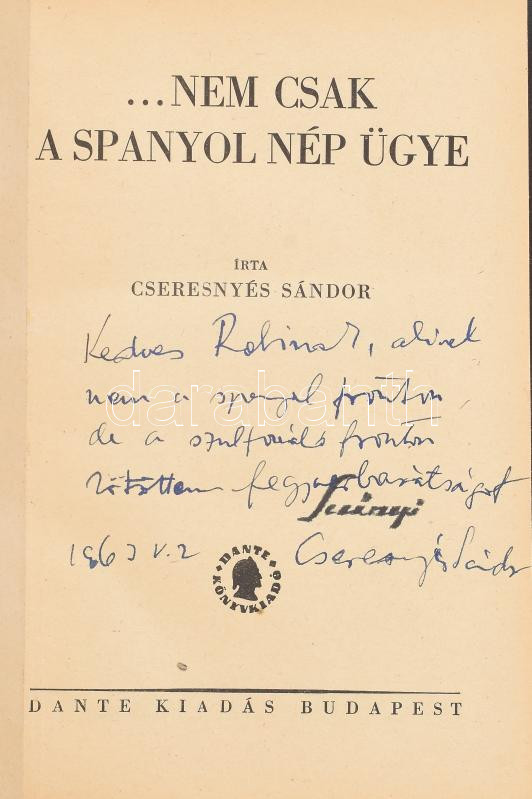 ...NEM CSAK
A SPANYOL NÉP ÜGYE
ÍRTA
CSERESNYÉS SÁNDOR
Kedves, akivel
nem a spanyol fronton
de a fronton
kötöttem fegyverbarátságot
1963 V. 2
Cseresnyés Sándor
DANTE KÖNYVKIADÓ
DANTE KIADÁS BUDAPEST
darabanth